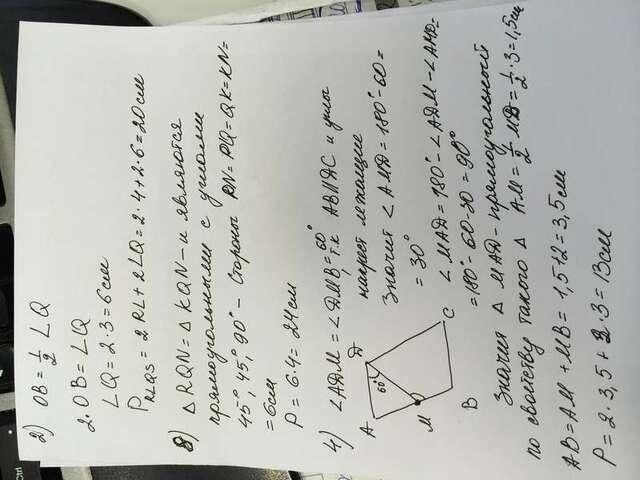 2) OB = 1/2 LQ
2·OB = LQ
LQ = 2·3 = 6 см
P RLQS = 2RL + 2LQ = 2·4 + 2·6 = 20 см
8) △RQN = △KQN – и являются
прямоугольными с углами
45°, 45°, 90° – стороны RN = RQ = QK = KN =
= 6 см
P = 6·4 = 24 см
4) ∠ADM = ∠DMB = 60°
, т.к AB||DC и углы
накрест лежащие
Значит ∠AMD = 180° - 60 =
= 30°
∠MAD = 180° - ∠ADM - ∠AMD =
= 180° - 60 - 30 = 90°
A
D
60°
M
C
B
Значит △ MAD - прямоугольный
по свойству такого △ AM = 1/2 MD = 1/2·3 = 1,5 см
AB = AM + MB = 1,5 + 2 = 3,5 см
P = 2·3,5 + 2·3 = 13 см
Ctrl